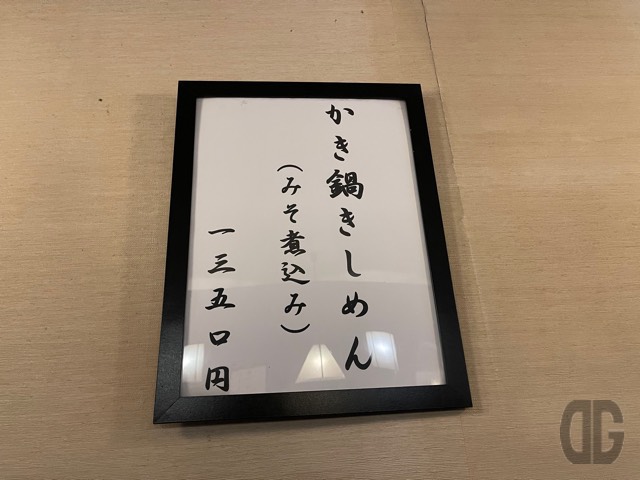 かき鍋きしめん
(みそ煮込み)
一三五〇円
DG